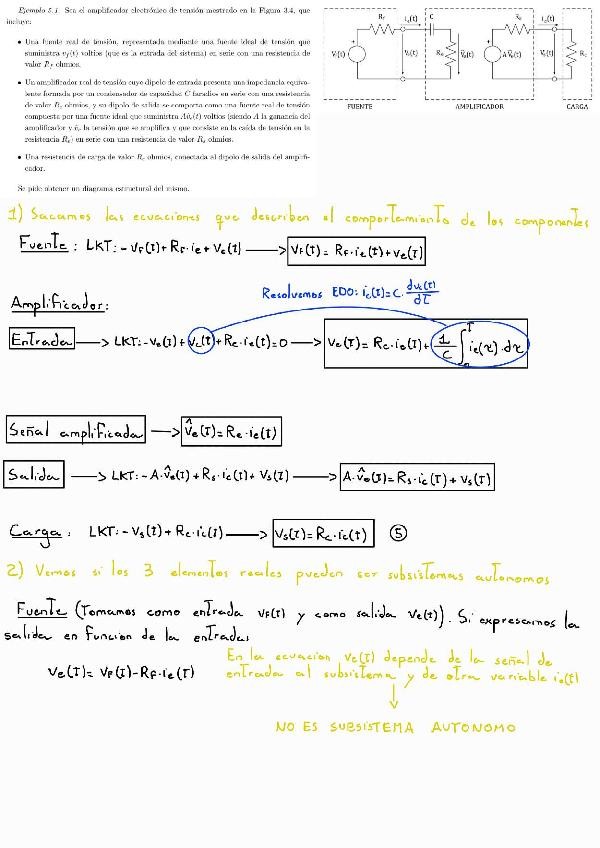 Ejemplo 5.1. Sea el amplificador electrónico de tensión mostrado en la Figura 3.4, que
incluye:
• Una fuente real de tensión, representada mediante una fuente ideal de tensión que
suministra v_f(t) voltios (que es la entrada del sistema) en serie con una resistencia de
valor R_f ohmios.
• Un amplificador real de tensión cuyo dipolo de entrada presenta una impedancia equiva-
lente formada por un condensador de capacidad C faradios en serie con una resistencia
de valor R_e ohmios, y su dipolo de salida se comporta como una fuente real de tensión
compuesta por una fuente ideal que suministra Av̂_e(t) voltios (siendo A la ganancia del
amplificador y v̂_e la tensión que se amplifica y que consiste en la caída de tensión en la
resistencia R_e) en serie con una resistencia de valor R_s ohmios.
• Una resistencia de carga de valor R_c ohmios, conectada al dipolo de salida del amplifi-
cador.
Se pide obtener un diagrama estructural del mismo.
R_f i_e(t) C R_s i_c(t)
V_f(t) V_e(t) R_e V̂_e(t) A V̂_e(t) V_s(t) R_c
FUENTE AMPLIFICADOR CARGA
1) Sacamos las ecuaciones que describen el comportamiento de los componentes
Fuente: LKT: -V_F(t)+R_F·i_e+V_e(t) → V_F(t)=R_F·i_e(t)+v_e(t)
Resolvemos EDO: i_c(t)=C·dv_c(t)/dt
Amplificador:
Entrada → LKT: -v_e(t)+v_c(t)+R_e·i_e(t)=0 → V_e(t)=R_e·i_e(t)+1/C ∫_0^t i_e(τ)·dτ
Señal amplificada → v̂_e(t)=R_e·i_e(t)
Salida → LKT: -A·v̂_e(t)+R_s·i_c(t)+V_s(t) → A·v̂_e(t)=R_s·i_c(t)+V_s(t)
Carga: LKT: -V_s(t)+R_c·i_c(t) → V_s(t)=R_c·i_c(t) ⑤
2) Vemos si los 3 elementos reales pueden ser subsistemas autonomos
Fuente (Tomamos como entrada V_F(t) y como salida V_e(t)). Si expresamos la
salida en funcion de la entrada:
V_e(t)=V_F(t)-R_F·i_e(t)
En la ecuacion V_e(t) depende de la señal de
entrada al subsistema y de otra variable i_e(t)
↓
NO ES SUBSISTEMA AUTONOMO